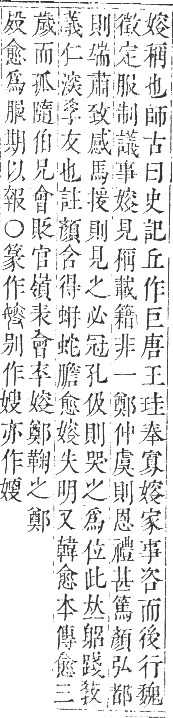 嫂稱也師古曰史記丘作巨唐王珪奉寡嫂家事咨而後行魏
徵定服制議事嫂見稱載籍非一鄭仲虞則恩禮甚篤顏弘都
則端肅致感馬援則見之必冠孔伋則哭之爲位此竝躬踐敎
義仁深孝友也註顏含得蚺蛇膽愈嫂失明又韓愈本傳愈三
歲而孤隨伯兄會貶官嶺表會卒嫂鄭鞠之鄭
歿愈爲服期以報○篆作㛮別作嫂亦作㛐